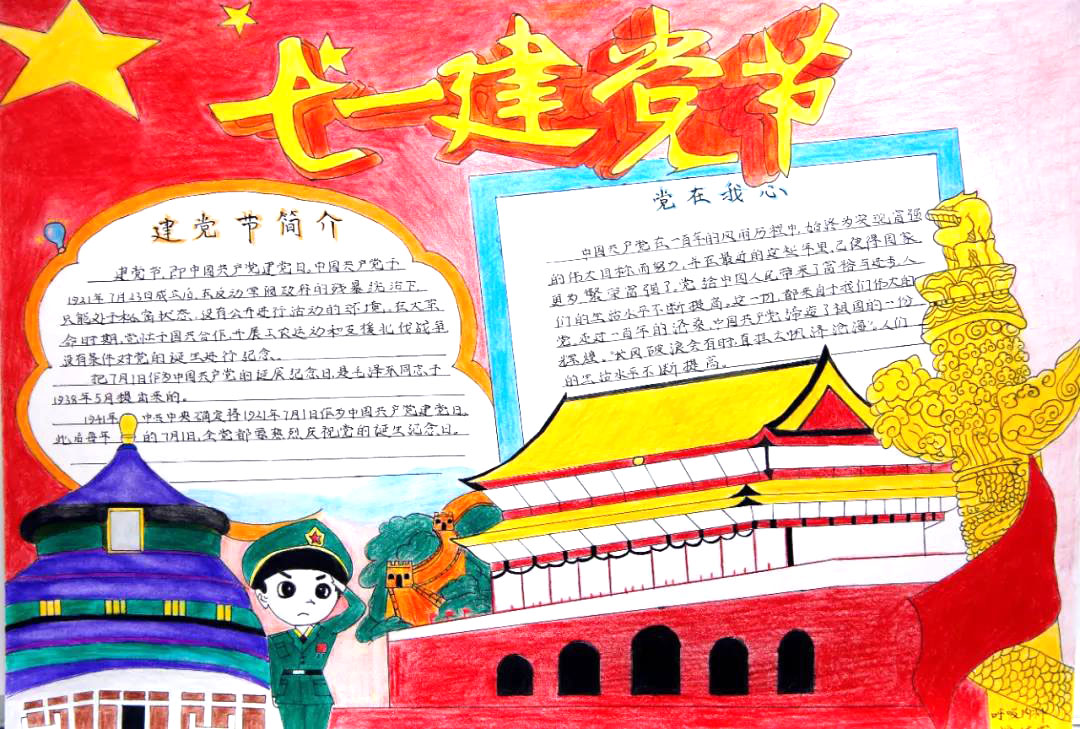 七一建党节
建党节简介
建党节,即中国共产党建党日。中国共产党于
1921年7月23日成立后,在反动军阀政府的残暴统治下,
只能处于秘密状态,没有公开进行活动的环境。在大革
命时期,党忙于国共合作、开展工农运动和支援北伐战争,
没有条件对党的诞生进行纪念。
把7月1日作为中国共产党的诞辰纪念日,是毛泽东同志于
1938年5月提出来的。
1941年 中共中央确定将1921年7月1日作为中国共产党建党日。
此后每年 的7月1日,全党都要热烈庆祝党的诞生纪念日。
党在我心
中国共产党在一百年的风雨历程中,始终为实现富强
的伟大目标而努力,并在最近的这些年里已使得国家
更为繁荣富强了,党给中国人民带来了富裕与进步,人
们的生活水平不断提高,这一切,都来自于我们伟大的
党,走过一百年的沧桑,中国共产党缔造了祖国的一份
辉煌。"长风破浪会有时,直挂云帆济沧海",人们
的生活水平不断提高。